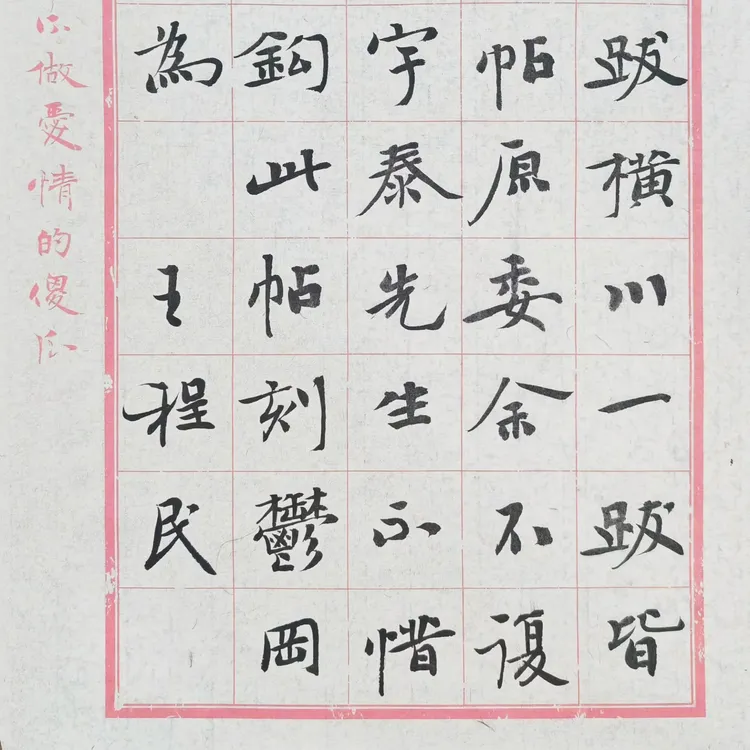 跋橫川一跋皆
帖原委余不復
宇泰先生不惜
鈎此帖刻鬱岡
為 王程民
不做愛情的傻瓜